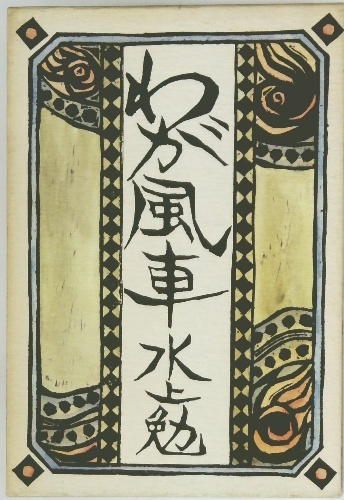 わが風車
水上勉